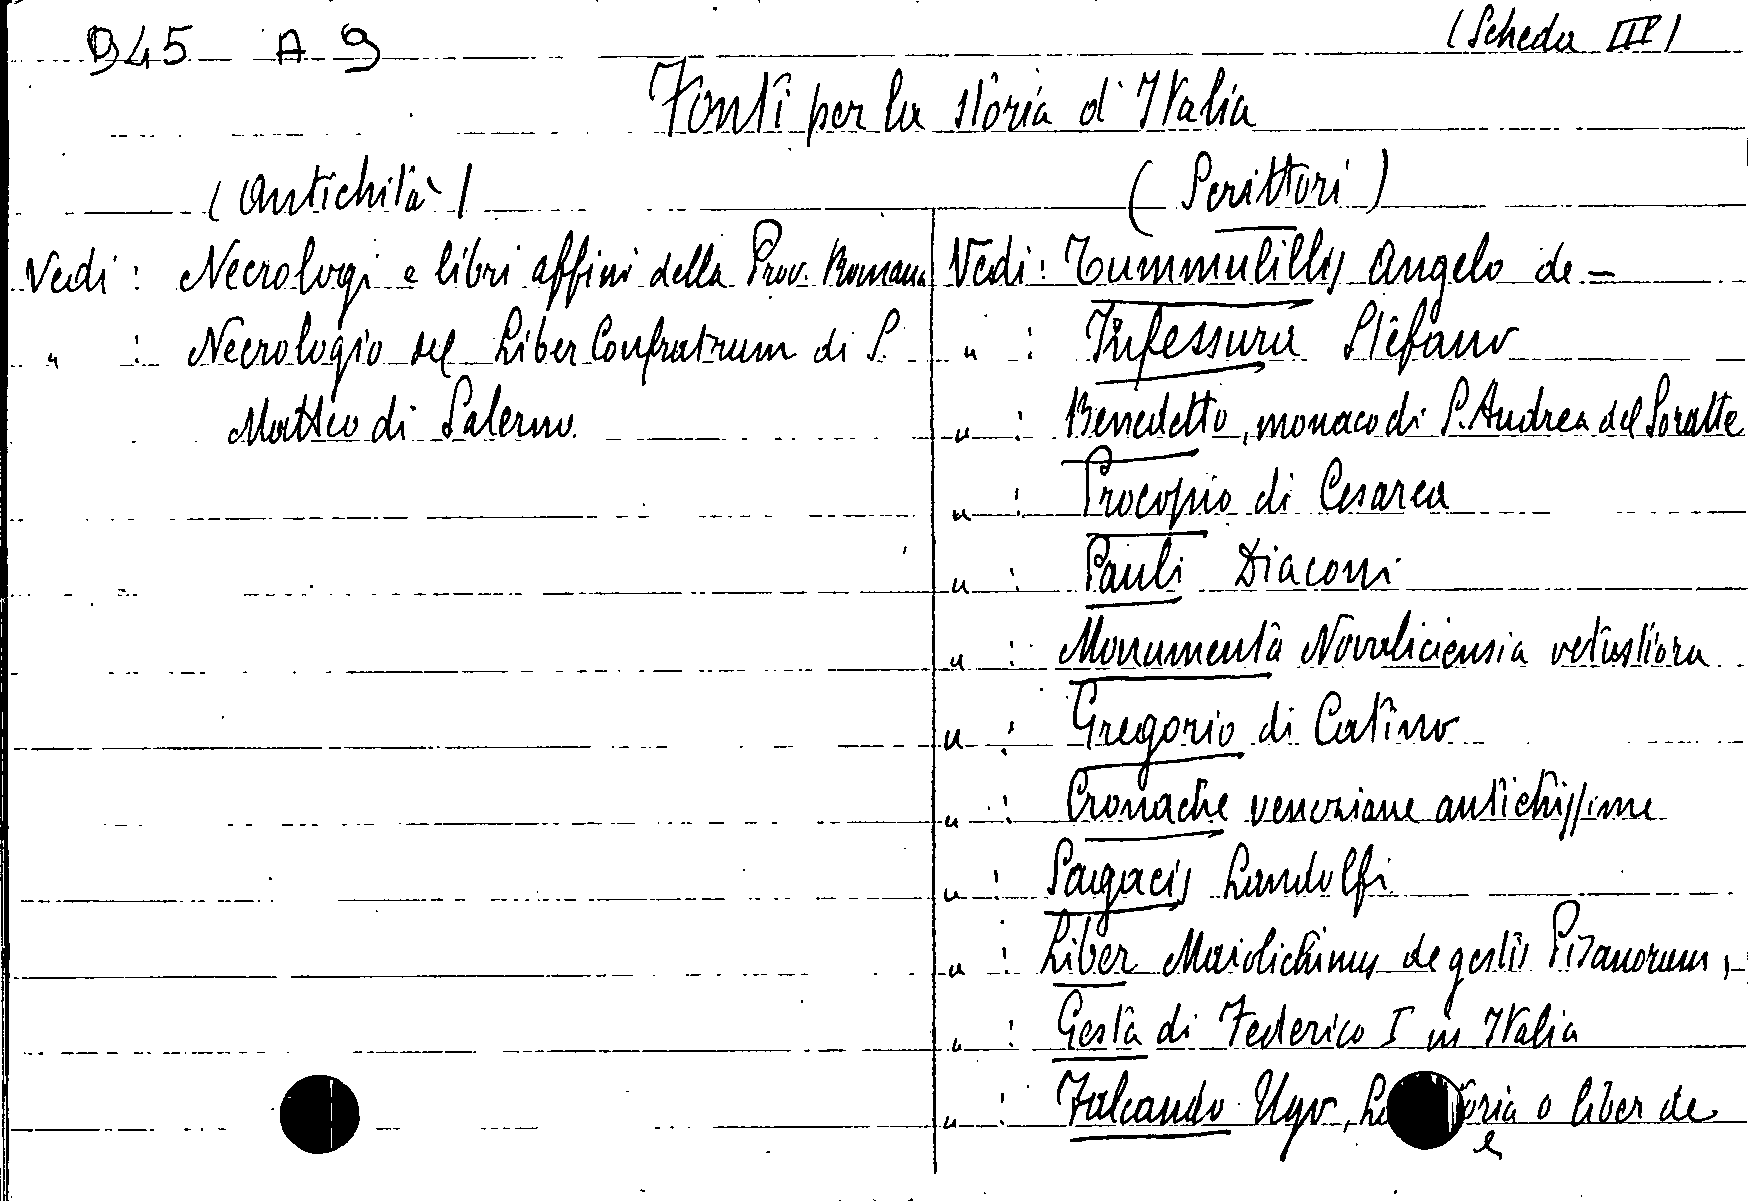 945 A 9
(Scheda III)
Fonti per la storia d'Italia
(Antichità)
Vedi: Necrologi e libri affini della Prov. Romana
" : Necrologio del Liber Confratrum di S.
Matteo di Salerno.
(Scrittori)
Vedi: Tummulillis Angelo de =
" : Infessura Stefano
" : Benedetto, monaco di S. Andrea del Soratte
" : Procopio di Cesarea
" : Pauli Diaconi
" : Monumenta Novaliciensia vetustiora
" : Gregorio di Catino
" : Cronache veneziane antichissime
" : Sagacis Landolfi
" : Liber Maiolichinus de gestis Pisanorum,
" : Gesta di Federico I in Italia
" : Falcando Ugo, La oria o liber de